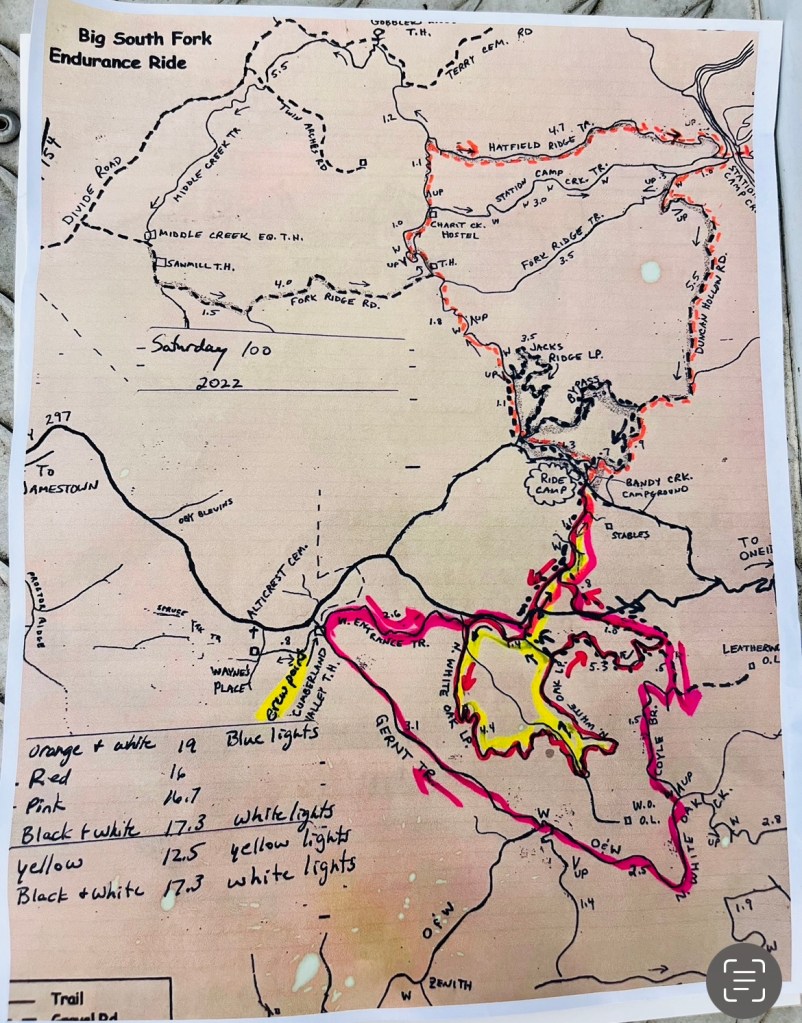 Big South Fork
Endurance Ride
T.H.
TERRY CEM. RD
5.5
154
TWIN ARCHES RD
1.2
4.7
UP
HATFIELD RIDGE TR.
MIDDLE CREEK TR
DIVIDE ROAD
1.1
UP
STATION CAMP CRK. TR.
W
N
3.0
W
UP
1.8
STATION
CAMP CR
1.0
CHARIT CK.
HOSTEL
W
UP
T.H.
MIDDLE CREEK EQ. T.H.
SAWMILL T.H.
FORK RIDGE TR.
3.5
UP
5.5
DUNCAN HOLLOW RD.
4.0
FORK RIDGE RD.
1.5
1.8
W
UP
Saturday 100
2022
3.5
JACKS
RIDGE LP.
W
UP
1.1
BYPASS
1.3
.7
.9
297
TO
JAMESTOWN
RIDE
CAMP
BANDY CRK.
CAMPGROUND
OBY BLEVINS
STABLES
TO
ONEI
ALTICREST CEM.
SPRUCE
TR
PROCTOR RIDGE
.8
WAYNE'S
PLACE
crew point
CUMBERLAND
VALLEY T.H.
2.6
W. ENTRANCE TR.
.8
1.8
5.3
.5
LEATHERW
O.L.
N. WHITE
OAK LP.
4.4
OAK LP.
N. WHITE
GERNT TR.
3.1
1.5
COYLE BR.
UP
W.O.
O.L.
N. WHITE OAK
CK.
W
2.8
orange + white 19 Blue lights
- Red 16
- Pink 16.7
Black + white 17.3 white lights
yellow 12.5 yellow lights
Black + white 17.3 white lights
W
O&W
2.5
UP
1.4
O&W
1.9
W
W
ZENITH
Trail
Gravel Rd